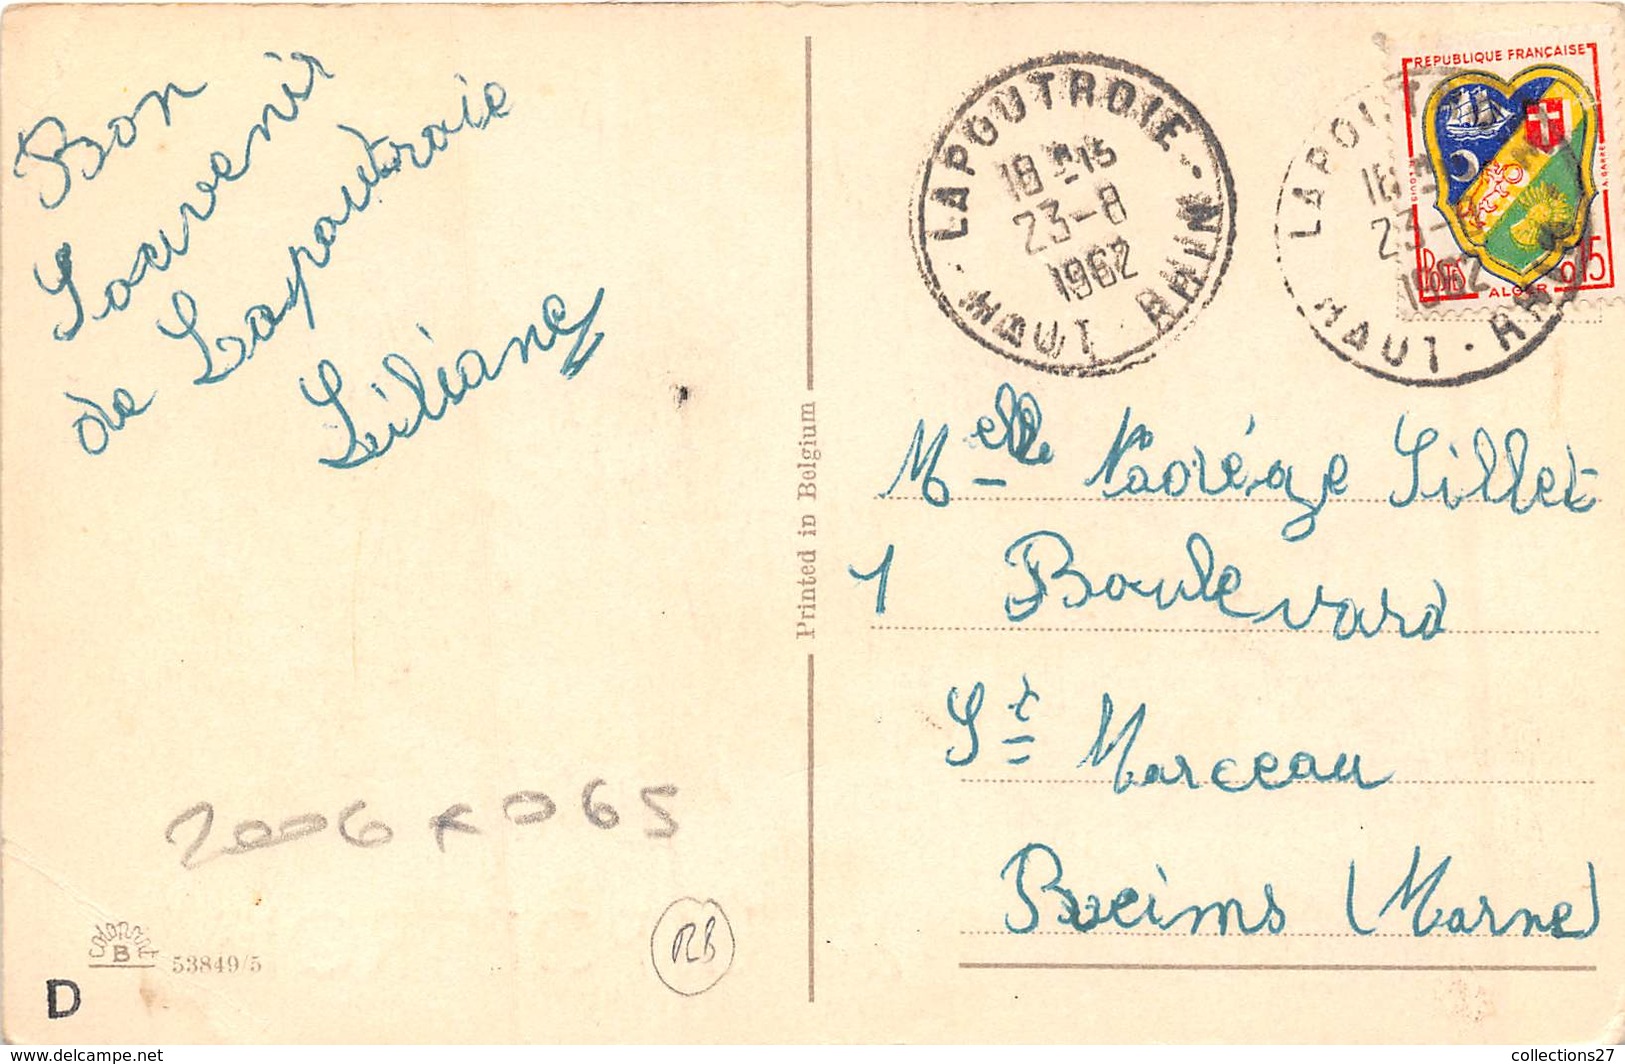 Bon
Souvenir
de Lapoutroie
Liliane
53849/5
B
D
2006 x 065
RB
Printed in Belgium
LAPOUTROIE
18H15
23-8
1962
HAUT-RHIN
LAPOUT
18H
23-8
1962
HAUT-RHIN
REPUBLIQUE FRANÇAISE
POSTES
ALGER
0,15
Melle Nadège Sillet
1 Boulevard
St Marceau
Reims (Marne)
collections27